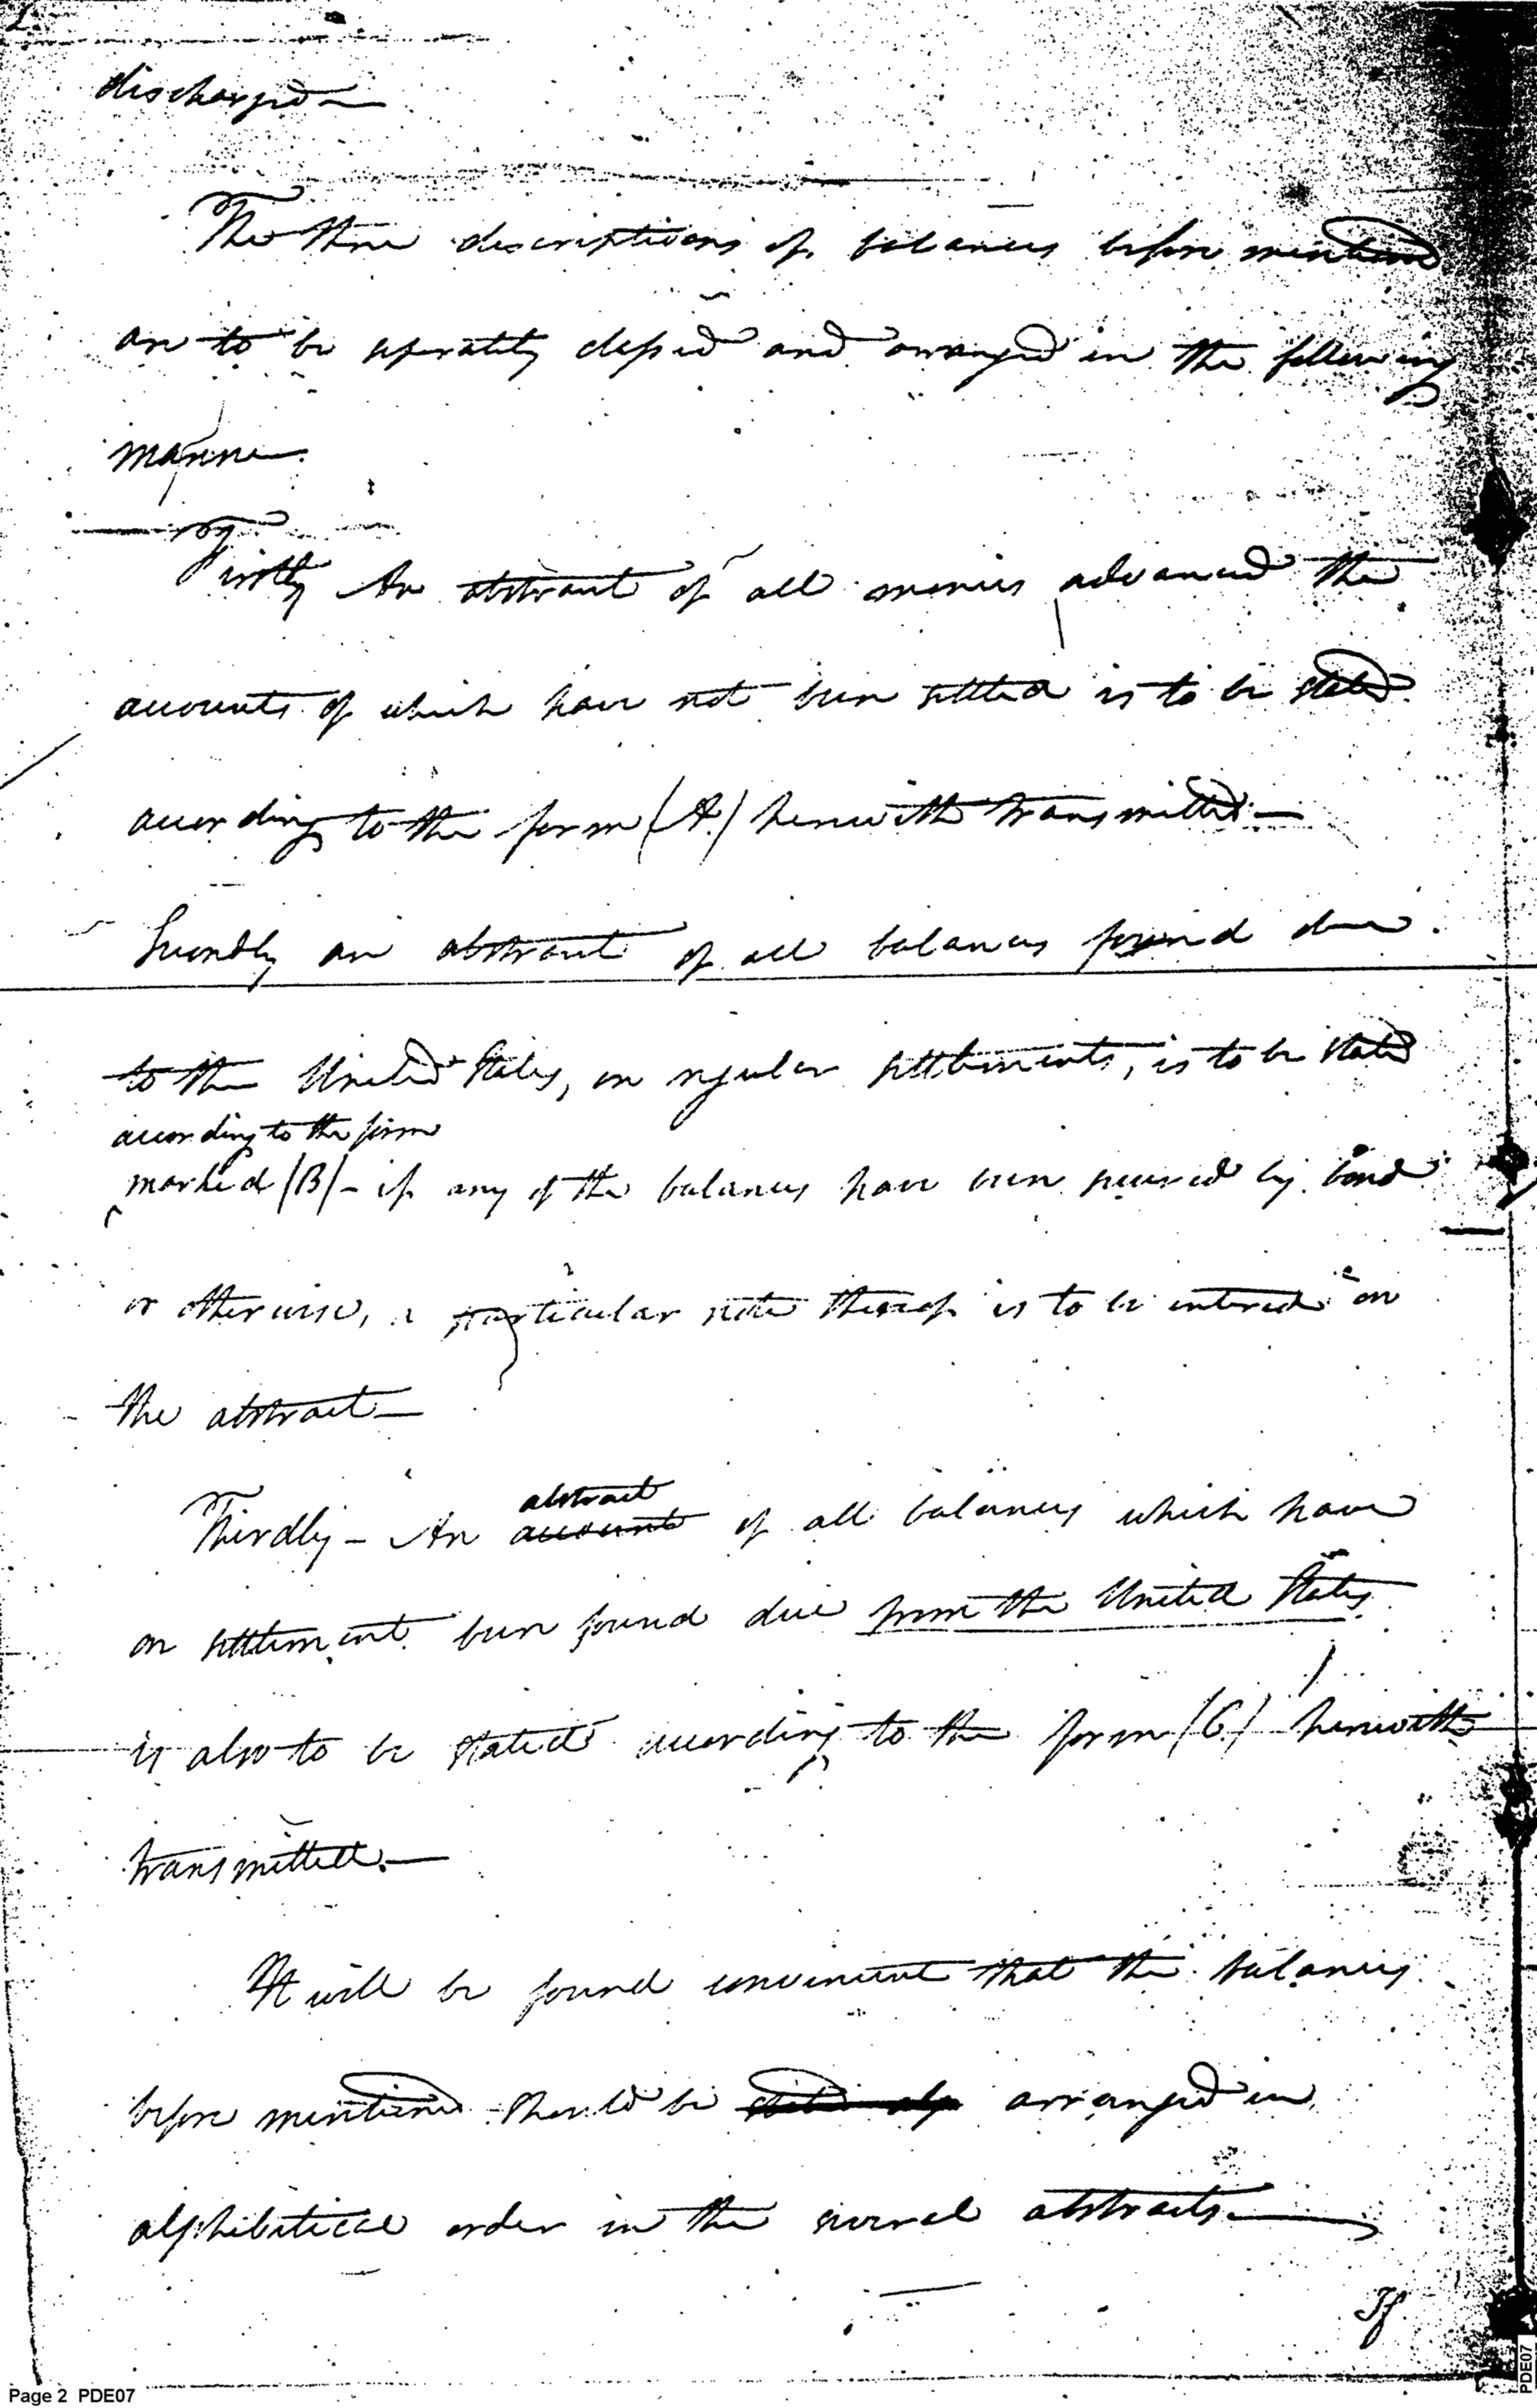 2
discharged—
The three descriptions of balances before mentioned
are to be separately classed and arranged in the following
manner.
Firstly An abstract of all monies advanced the
accounts of which have not been settled is to be stated
according to the form (A.) herewith transmitted.—
Secondly an abstract of all balances found due
to the United States, on regular settlements, is to be stated
according to the form
marked (B)– if any of the balances have been secured by bond
or otherwise, a particular note thereof is to be entered on
the abstract—
abstract
Thirdly – An account of all balances which have
on settlement been found due from the United States
is also to be stated according to the form (C.) herewith
transmitted.—
It will be found convenient that the balances
before mentioned should be arranged in
alphibetical order in the several abstracts.—
If
Page 2 PDE07
PDE07